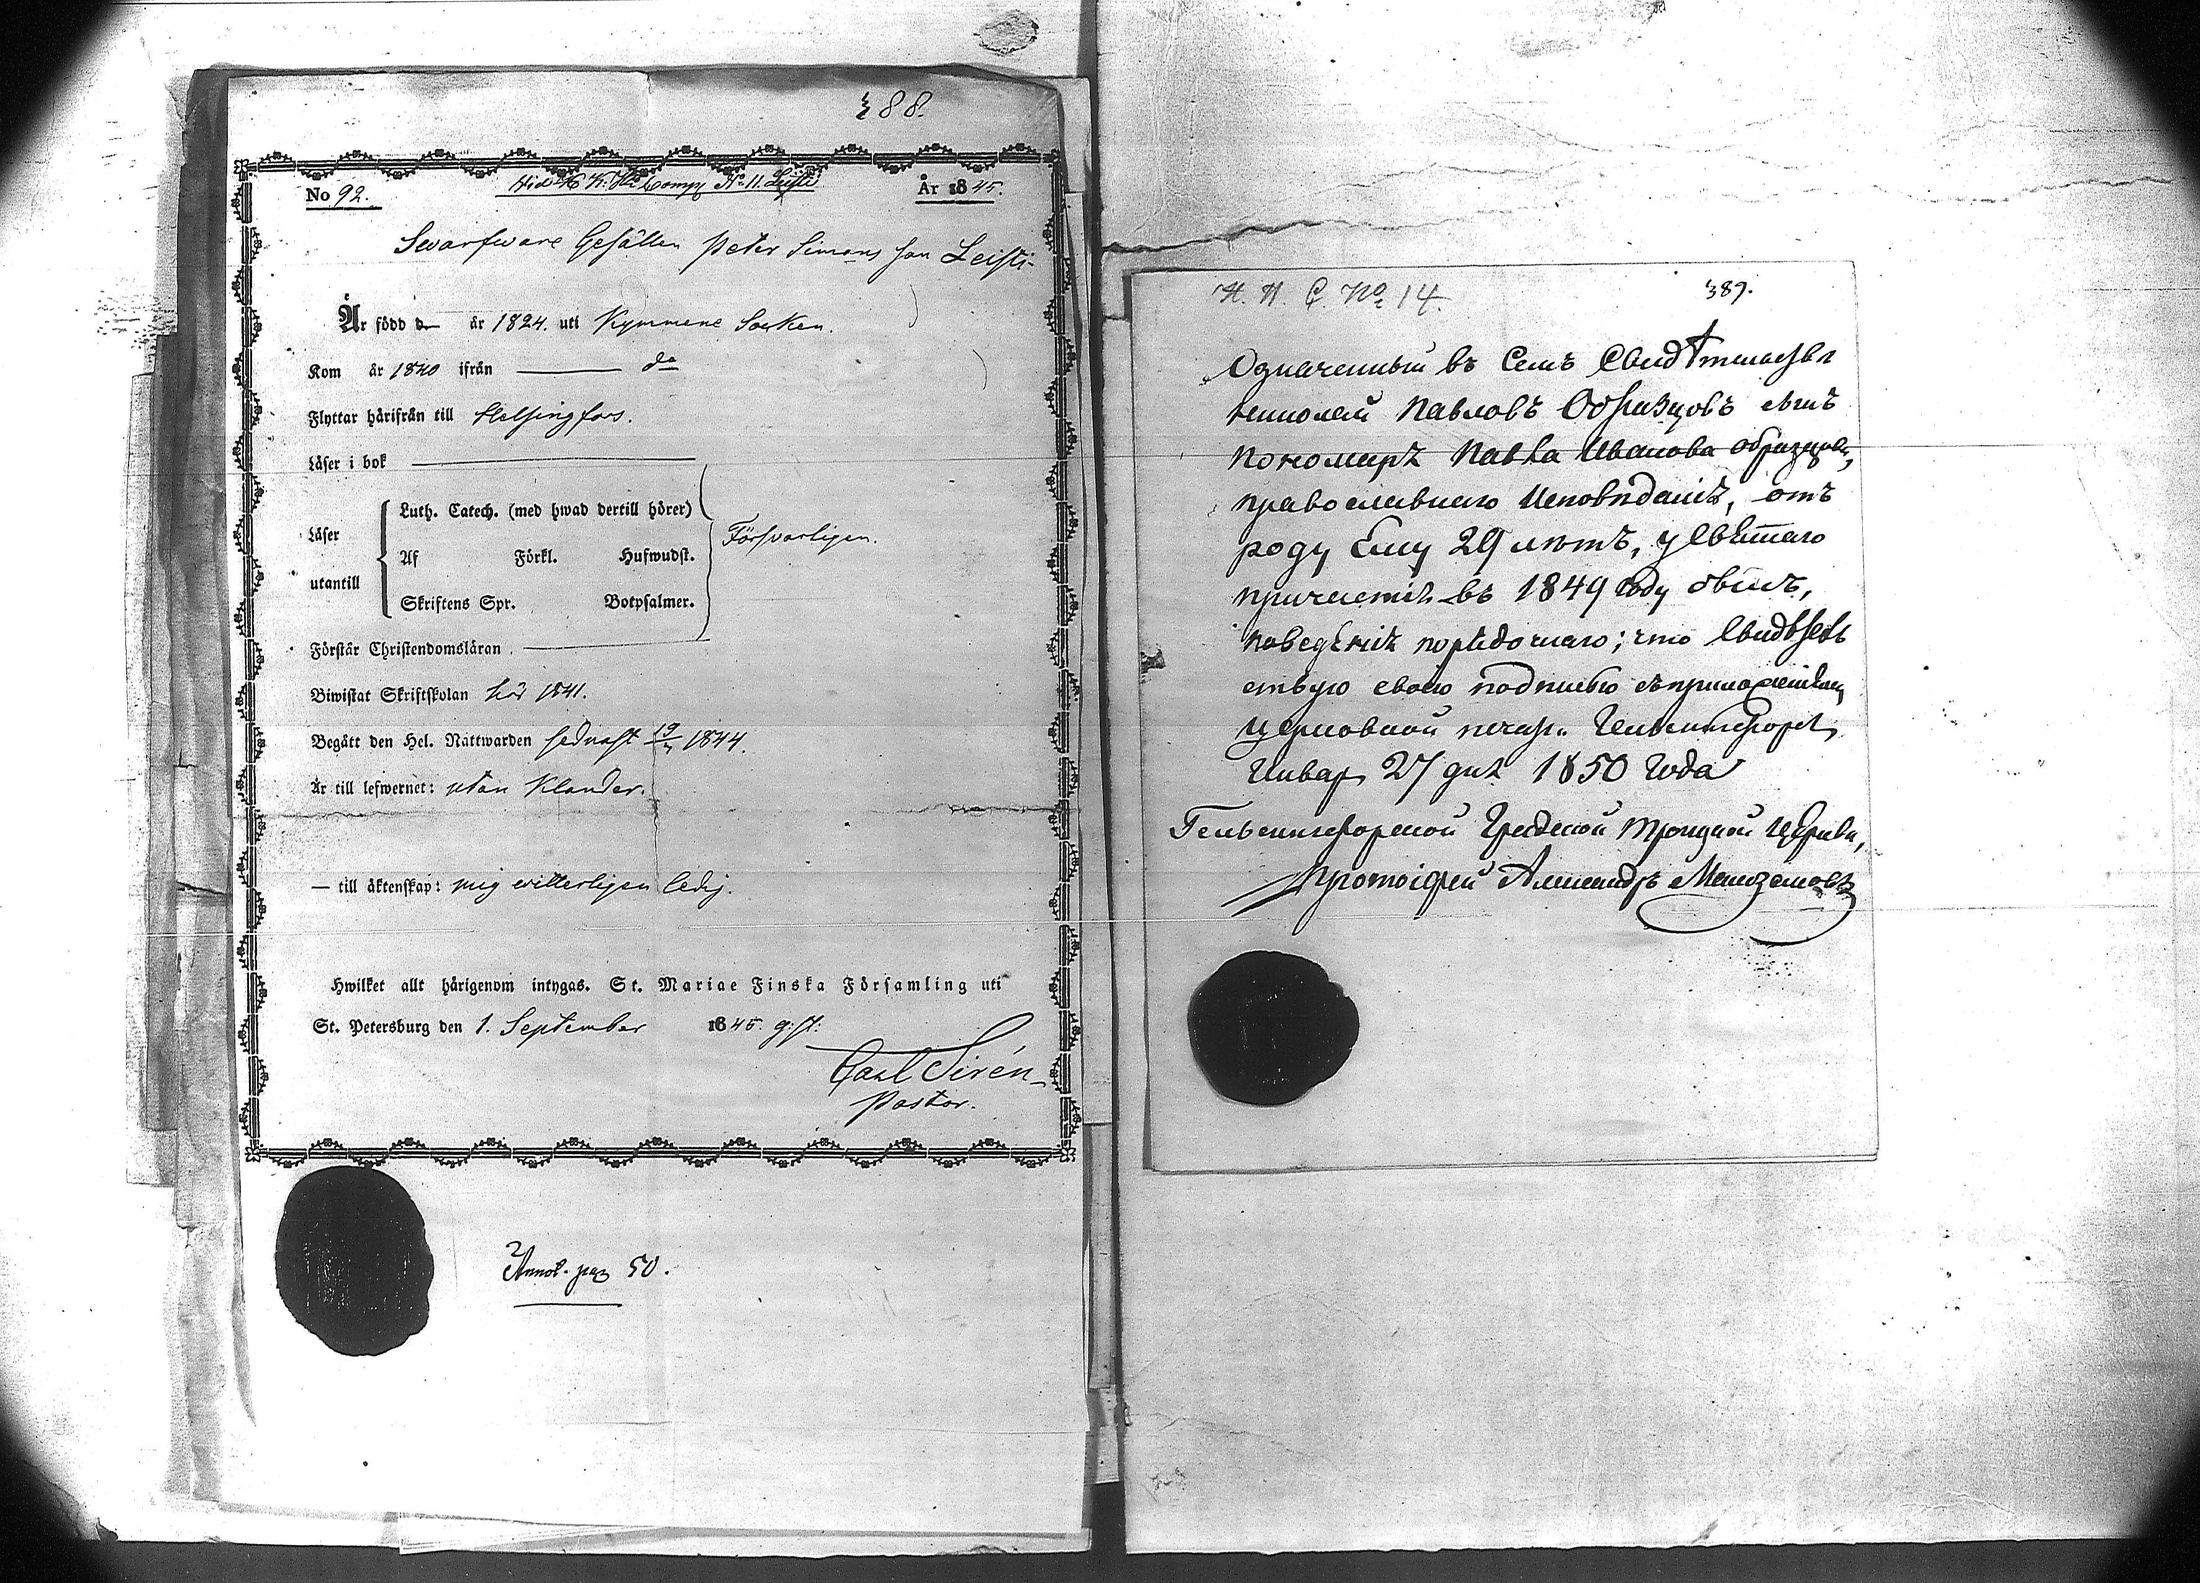 388.
No 92.
No 11. Leisti
År 1845.
Swarfware Gesällen Peter Simons son Leisti
Är född d— år 1824. uti Kymmene Socken.
Kom år 1840 ifrån ——— do
Flyttar härifrån till Helsingfors.
Läser i bok
Luth. Catech. (med hwad dertill hörer)
Läser
Af Förkl. Hufwudst.
Försvarligen.
utantill
Skriftens Spr. Botpsalmer.
Förstår Christendomsläran
Biwistat Skriftskolan här 1841.
Begått den Hel. Nattwarden sednast 1844.
Är till lefwernet: utan klander.
— till äktenskap: mig witterligen ledig.
Hwilket allt härigenom intygas. St. Mariae Finska Församling uti
St. Petersburg den 1. September 1845. g. st:
Carl Sirén
Pastor.
Annot. pag 50.
No 14.
389.
Означенный въ семъ Свидѣтельствѣ
Николай Павловъ Образцовъ сынъ
пономаря Павла Иванова Образцова,
православнаго исповѣданія, отъ
роду ему 29 лѣтъ, у Святаго
причастія въ 1849 году былъ,
поведенія порядочнаго; что свидѣтель
ствую своею подписью съ приложеніемъ
церковной печати. Гельсингфорсъ,
Января 27 дня 1850 года
Гельсингфорской Градской Троицкой Церкви,
Протоіерей Александръ Малоземовъ